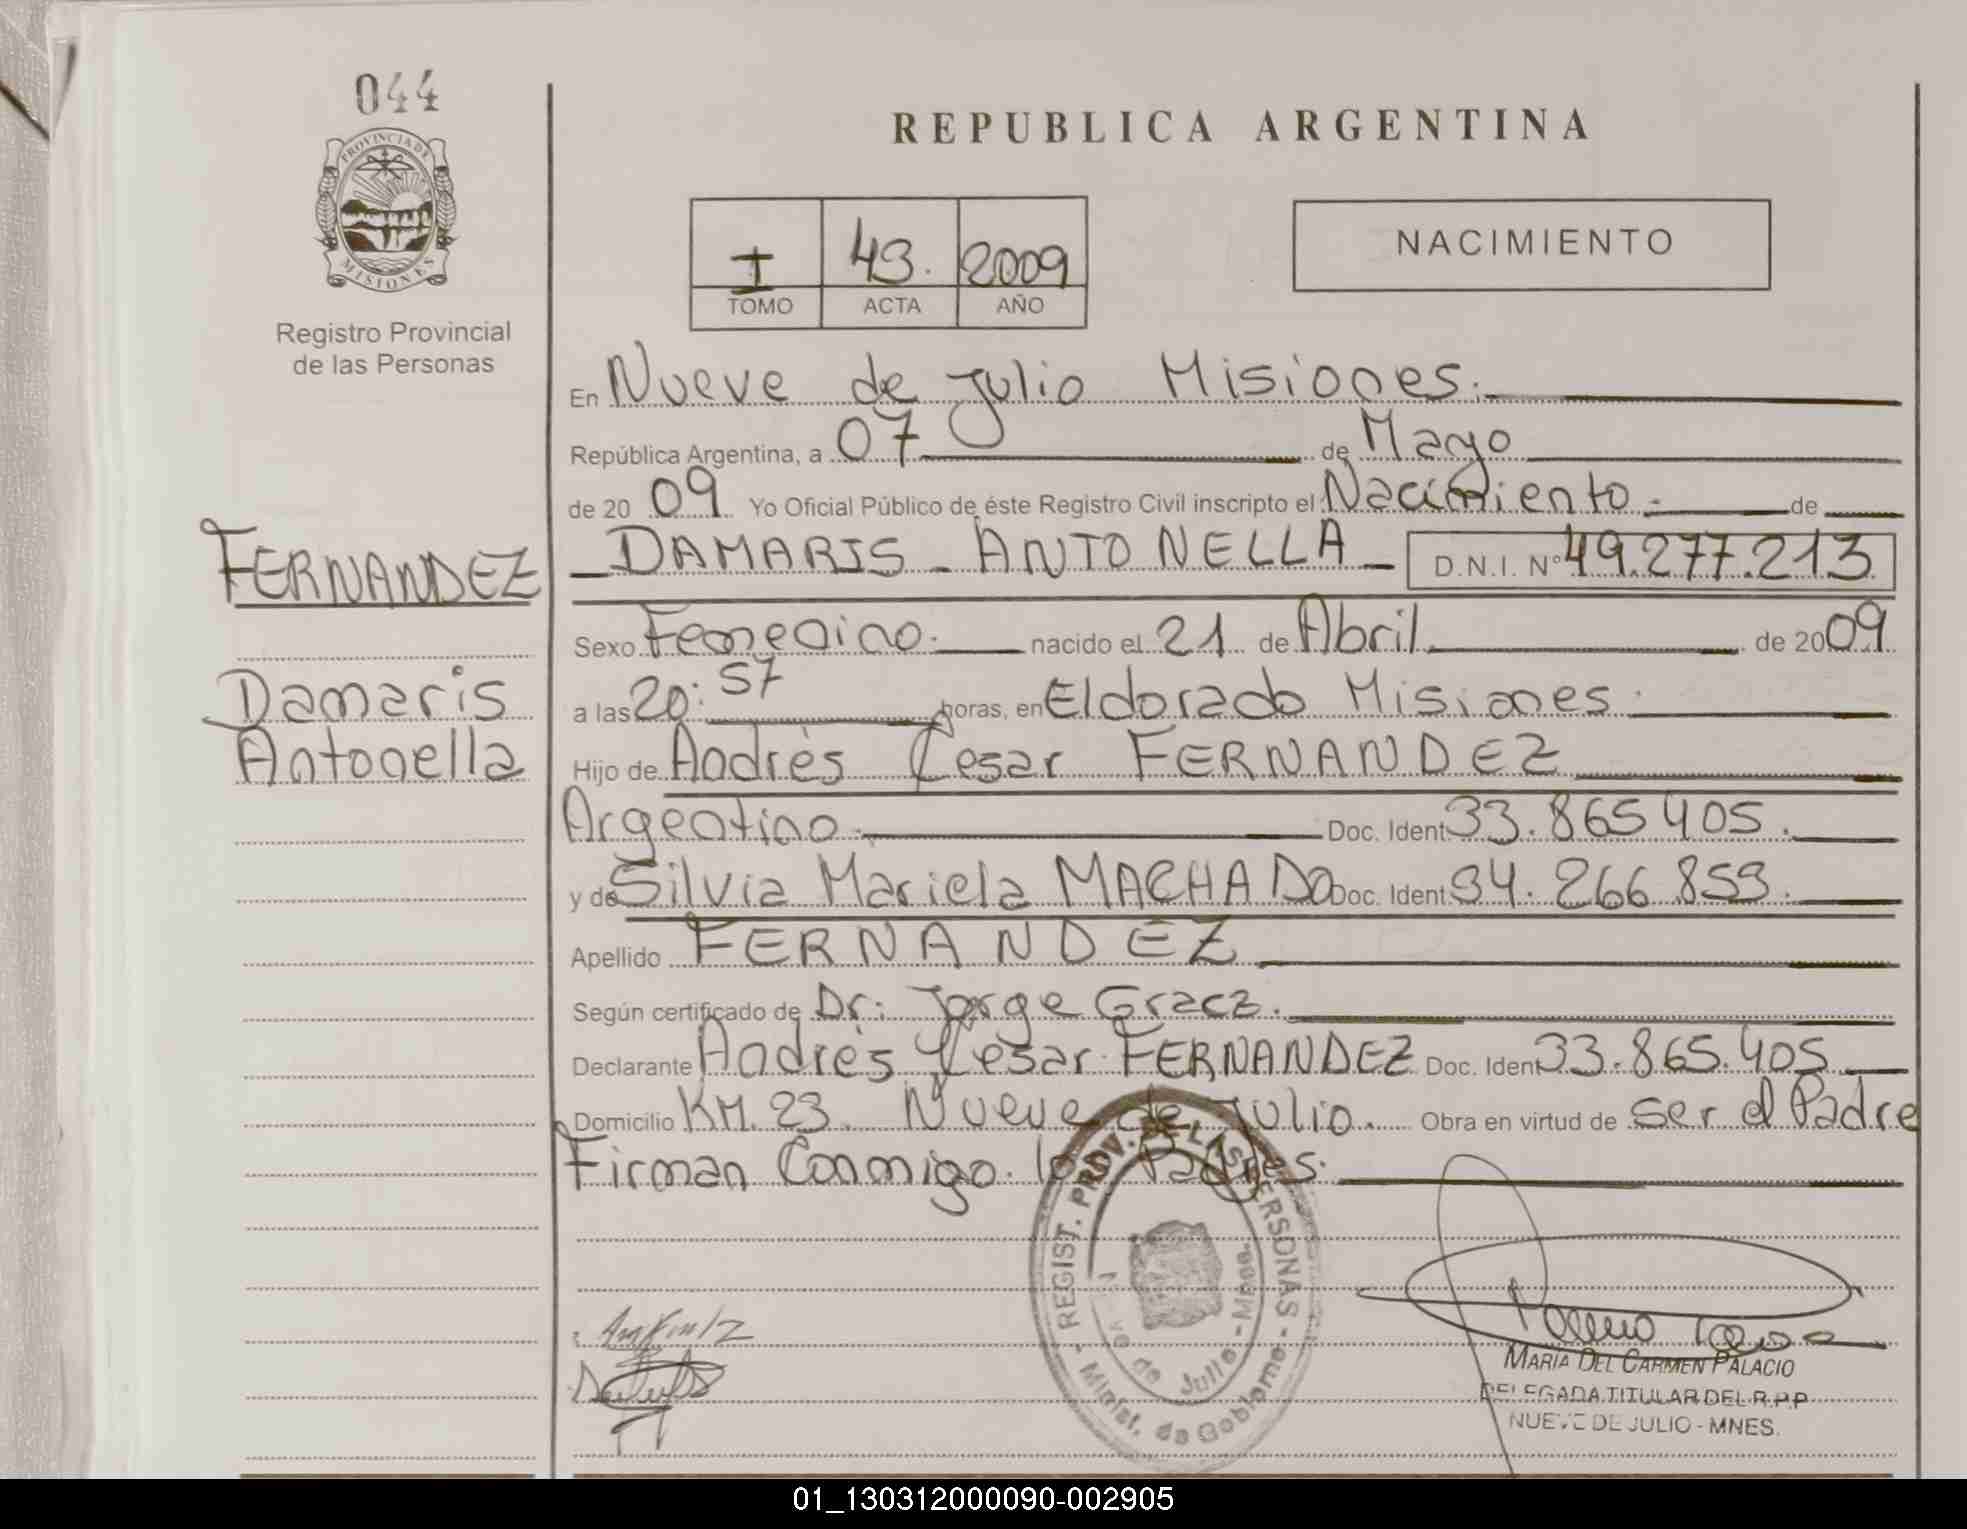 044
PROVINCIA DE
MISIONES
Registro Provincial
de las Personas
REPUBLICA ARGENTINA
I 43. 2009
TOMO ACTA AÑO
NACIMIENTO
En Nueve de Julio Misiones.
República Argentina, a 07 de Mayo
de 20 09 Yo Oficial Público de éste Registro Civil inscripto el Nacimiento.- de
FERNANDEZ
DAMARIS - ANTONELLA - D.N.I. Nº 49.277.213
Sexo Femenino. nacido el 21 de Abril de 2009
Damaris
Antonella
a las 20:57 horas, en Eldorado Misiones.
Hijo de Andrés Cesar FERNANDEZ
Argentino. Doc. Ident. 33.865405.
y de Silvia Mariela MACHADO Doc. Ident. 34.266.859.
Apellido FERNANDEZ
Según certificado de Dr: Jorge Gracz.
Declarante Andrés Cesar FERNANDEZ Doc. Ident 33.865.405
Domicilio KM. 23. Nueve de Julio. Obra en virtud de ser el Padre
Firman Conmigo. los Padres.
REGIST. PROV. DE LAS PERSONAS
Nueve de Julio - Mnes.
- Minist. de Gobierno -
MARIA DEL CARMEN PALACIO
DELEGADA TITULAR DEL R.P.P
NUEVE DE JULIO - MNES.
01_130312000090-002905